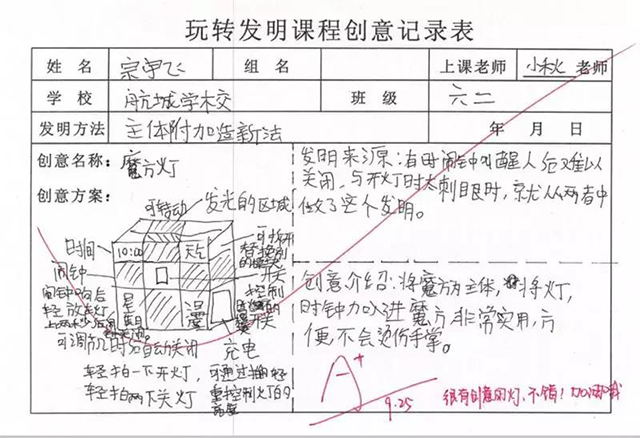 玩转发明课程创意记录表
姓 名 宗宇飞 组 名 上课老师 小秋 老师
学 校 航城学校 班 级 六二
发明方法 主体附加造新法 年 月 日
创意名称：魔方灯
创意方案：
可转动 发光的区域
时间
10:00
天气
闹钟
星期
温
可拆开
替换别的
开关
控制
开关
可调几时分自动关闭
充电
轻拍一下开灯，
轻拍两下关灯
发明来源：有时闹钟叫醒人后难以
关闭，与开灯时太刺眼时，就从两者中
做了这个发明。
创意介绍：将魔方为主体，将灯，
时钟加入进魔方非常实用，方
便，不会烫伤手掌。
A+
9.25
很有创意的灯，不错！加油哦